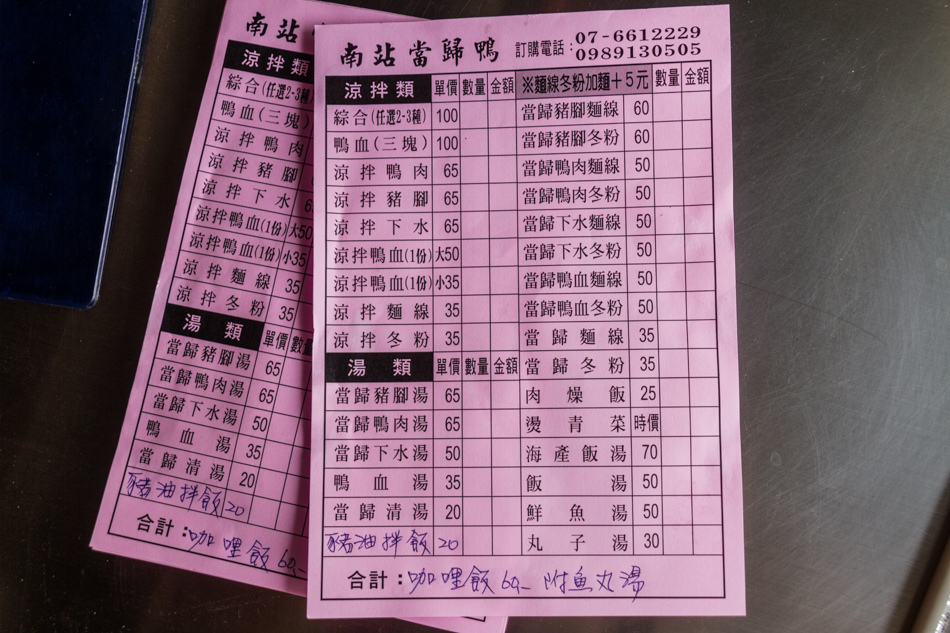 南站當歸鴨 訂購電話：07-6612229
0989130505
涼拌類 單價 數量 金額 ※麵線冬粉加麵＋5元 數量 金額
綜合(任選2-3種) 100 當歸豬腳麵線 60
鴨血(三塊) 100 當歸豬腳冬粉 60
涼拌鴨肉 65 當歸鴨肉麵線 50
涼拌豬腳 65 當歸鴨肉冬粉 50
涼拌下水 65 當歸下水麵線 50
涼拌鴨血(1份) 大50 當歸下水冬粉 50
涼拌鴨血(1份) 小35 當歸鴨血麵線 50
涼拌麵線 35 當歸鴨血冬粉 50
涼拌冬粉 35 當歸麵線 35
湯類 單價 數量 金額 當歸冬粉 35
當歸豬腳湯 65 肉燥飯 25
當歸鴨肉湯 65 燙青菜 時價
當歸下水湯 50 海產飯湯 70
鴨血湯 35 飯湯 50
當歸清湯 20 鮮魚湯 50
豬油拌飯 20 丸子湯 30
合計：咖哩飯60.- 附魚丸湯
南站
涼拌類
綜合(任選2-3種)
鴨血(三塊)
涼拌鴨肉
涼拌豬腳
涼拌下水
涼拌鴨血(1份) 大50
涼拌鴨血(1份) 小35
涼拌麵線 35
涼拌冬粉 35
湯類 單價
當歸豬腳湯 65
當歸鴨肉湯 65
當歸下水湯 50
鴨血湯 35
當歸清湯 20
豬油拌飯 20
合計：咖哩飯60.-